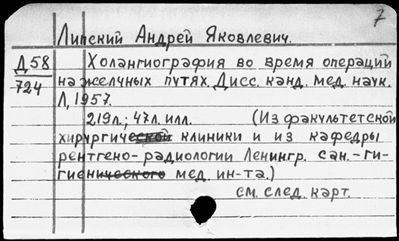 7
Липский Андрей Яковлевич.
Д58
724
Холангиография во время операций
на желчных путях. Дисс. канд. мед. наук.
Л, 1957.
219л.; 47л. илл. (Из факультетской
хирургической клиники и из кафедры
рентгено-радиологии Ленингр. сан.-ги-
гиенического мед. ин-та.)
см. след. карт.